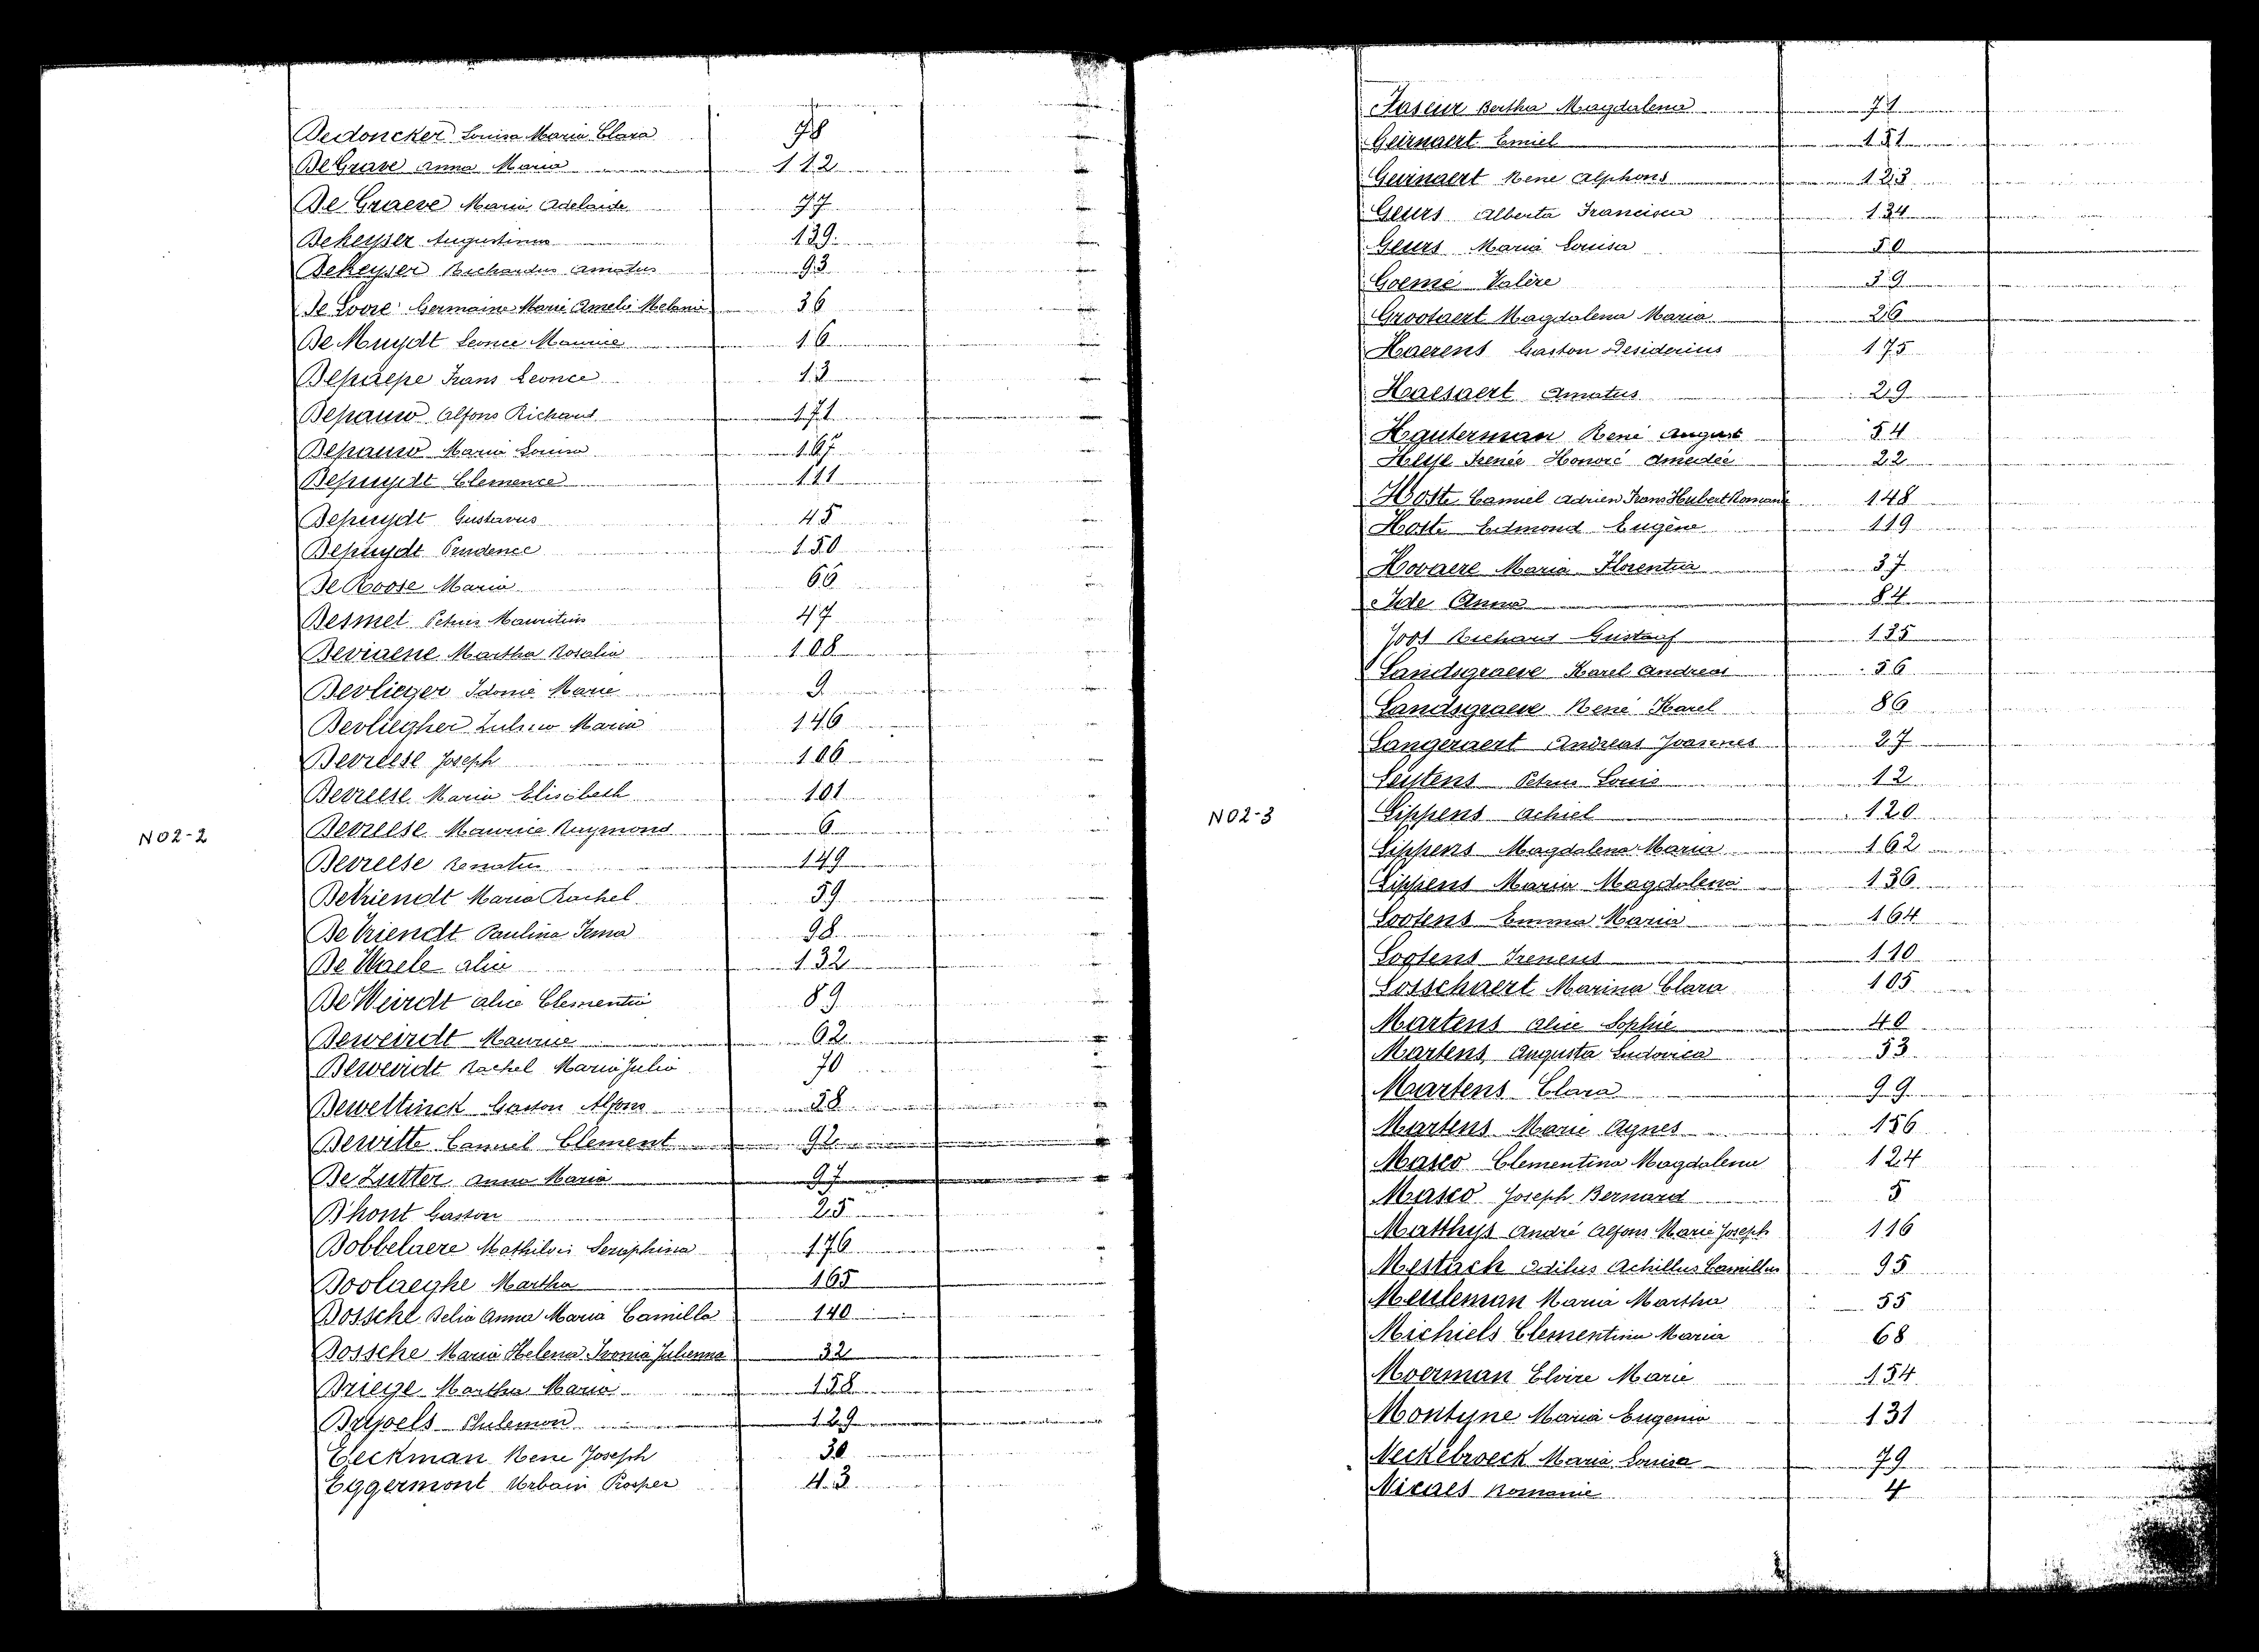 Dedoncker Louisa Maria Clara 78
De Grave Anna Maria 112
De Graeve Maria Adelaide 77
Dekeyser Augustinus 139
Dekeyser Richardus Amatus 93
De Loore Germaine Marie Amelie Melanie 36
De Muydt Leonce Maurice 16
Depaepe Frans Leonce 13
Depauw Alfons Richard 171
Depauw Maria Louisa 167
Depuydt Clemence 111
Depuydt Gustavus 45
Depuydt Prudence 150
De Roose Maria 66
Desmet Petrus Mauritius 47
Deviaene Martha Rosalia 108
Devlieger Idonie Marie 9
Devliegher Maria 146
Devreese Joseph 106
Devreese Maria Elisabeth 101
Devreese Maurice Raymond 6
Devreese Renatus 149
Devriendt Maria Rachel 59
De Vriendt Paulina Irma 98
De Waele Alice 132
De Weirdt Alice Clementia 89
Deweirdt Maurice 62
Deweirdt Rachel Maria Julia 70
Deweltinck Gaston Alfons 58
Dewitte Camiel Clement 92
De Zutter Anna Maria 97
D'hont Gaston 25
Dobbelaere Mathildis Seraphina 176
Doolaeghe Martha 165
Dossche Delia Anna Maria Camilla 140
Dossche Maria Helena Ivonia Julienna 32
Driege Martha Maria 158
Drypoels Philemon 129
Eeckman Rene Joseph 30
Eggermont Urbain Prosper 43
N02-2
Faseur Bertha Magdalena 71
Geirnaert Emiel 151
Geirnaert Rene Alphons 123
Geurs Alberta Francisca 134
Geurs Maria Louisa 50
Goemé Valère 39
Grootaert Magdalena Maria 26
Haerens Gaston Desiderius 175
Haesaert Amatus 29
Hauterman René August 54
Heyse Irenée Honoré Amedée 22
Hoste Camiel Adrien Frans Hubert Romanie 148
Hoste Edmond Eugène 119
Hovaere Maria Florentia 37
Ide Anna 84
Joos Richard Gustaaf 135
Landsgraeve Karel Andreas 56
Landsgraeve René Karel 86
Langeraert Andreas Joannes 27
Leytens Petrus Louis 12
Lippens Achiel 120
Lippens Magdalena Maria 162
Lippens Maria Magdalena 136
Lootens Emma Maria 164
Lootens Ireneus 110
Losschaert Marina Clara 105
Martens Alice Sophie 40
Martens Augusta Ludovica 53
Martens Clara 99
Martens Marie Agnes 156
Masco Clementina Magdalena 124
Masco Joseph Bernard 5
Matthys André Alfons Marie Joseph 116
Mestach Odilus Achillus Camillus 95
Meuleman Maria Martha 55
Michiels Clementina Maria 68
Moerman Elvire Marie 154
Montyne Maria Eugenia 131
Neckebroeck Maria Louisa 79
Nicaes Romanie 4
N02-3